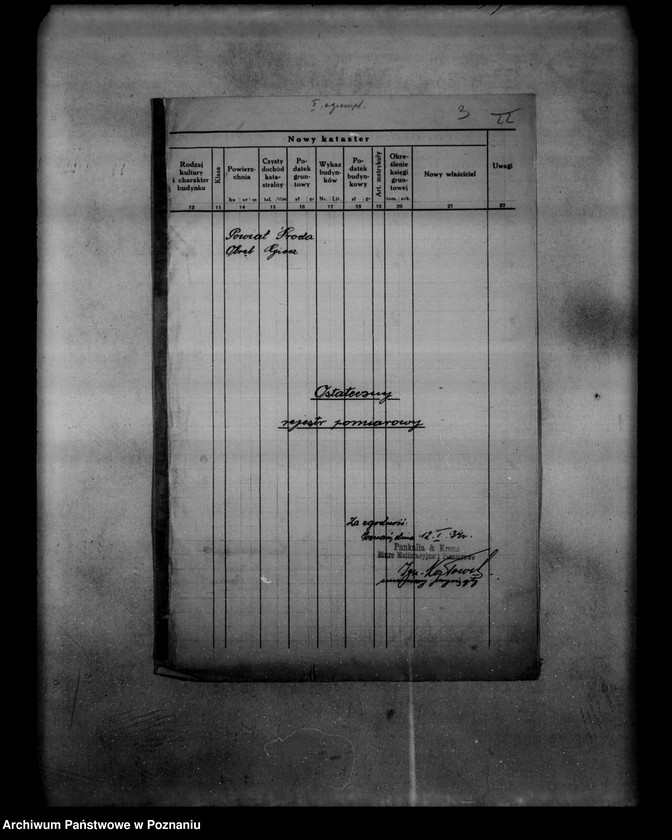 II egzempl.
3 II
Nowy kataster
Rodzaj kultury i charakter budynku
Klasa
Powierzchnia
ha ar m
Czysty dochód katastralny
tal.
Podatek gruntowy
zł gr
Wykaz budynków
Nr. Lit.
Podatek budynkowy
zł gr
Art. matrykuły
Określenie księgi gruntowej
tom ark.
Nowy właściciel
Uwagi
12 13 14 15 16 17 18 19 20 21 22
Powiat Środa
Obręb Giecz
Ostateczny
rejestr pomiarowy
Za zgodność.
Poznań, dnia 12. I. 34r.
Pankalla & Krenz
Biuro Melioracyjne i Pomiarowe
Archiwum Państwowe w Poznaniu